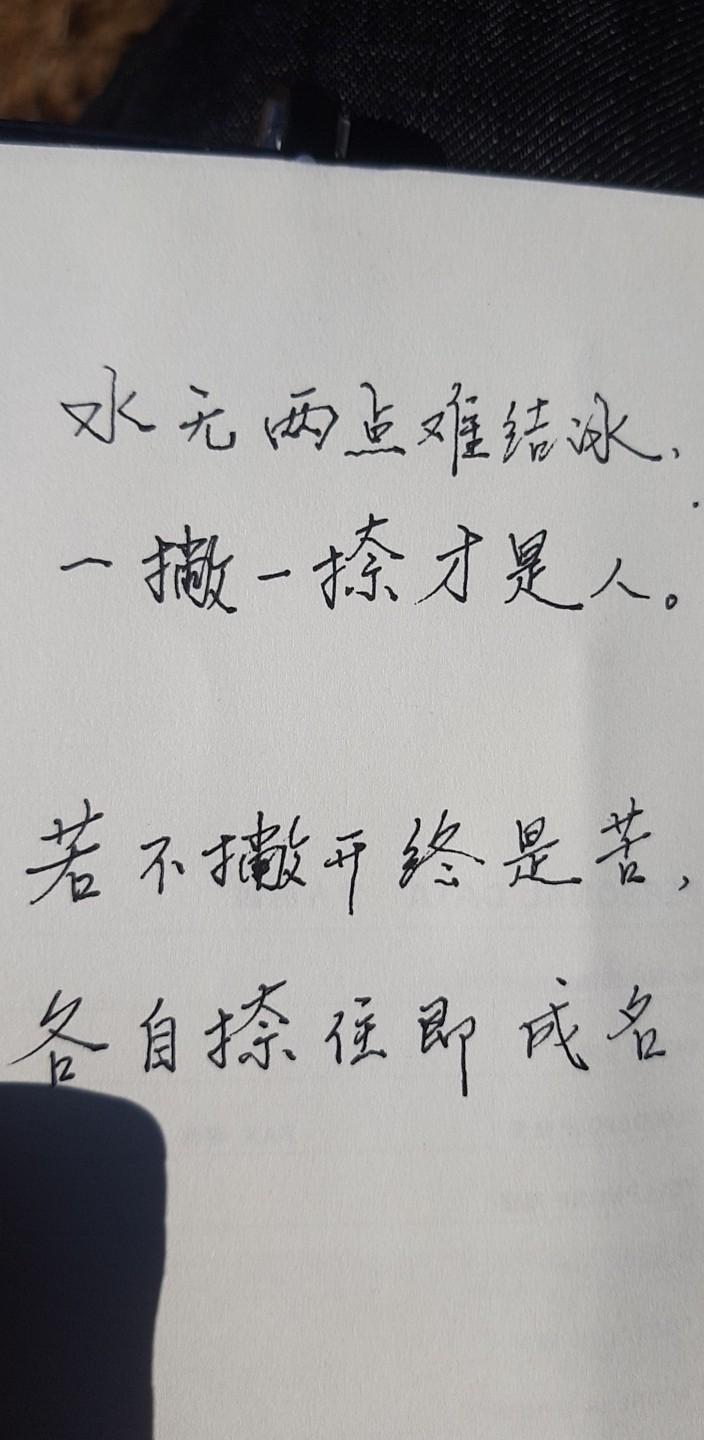 水无两点难结冰、
一撇一捺才是人。
若不撇开终是苦，
各自捺住即成名